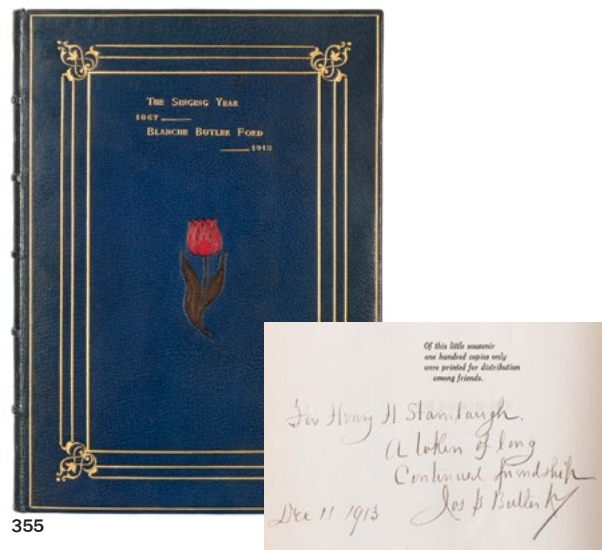 The Singing Year
1867
Blanche Butler Ford
1913
Of this little souvenir
one hundred copies only
were printed for distribution
among friends.
For Henry H Stambaugh.
A token of long
Continued friendship
Jos G Butler Jr
Dec 11 1913
355